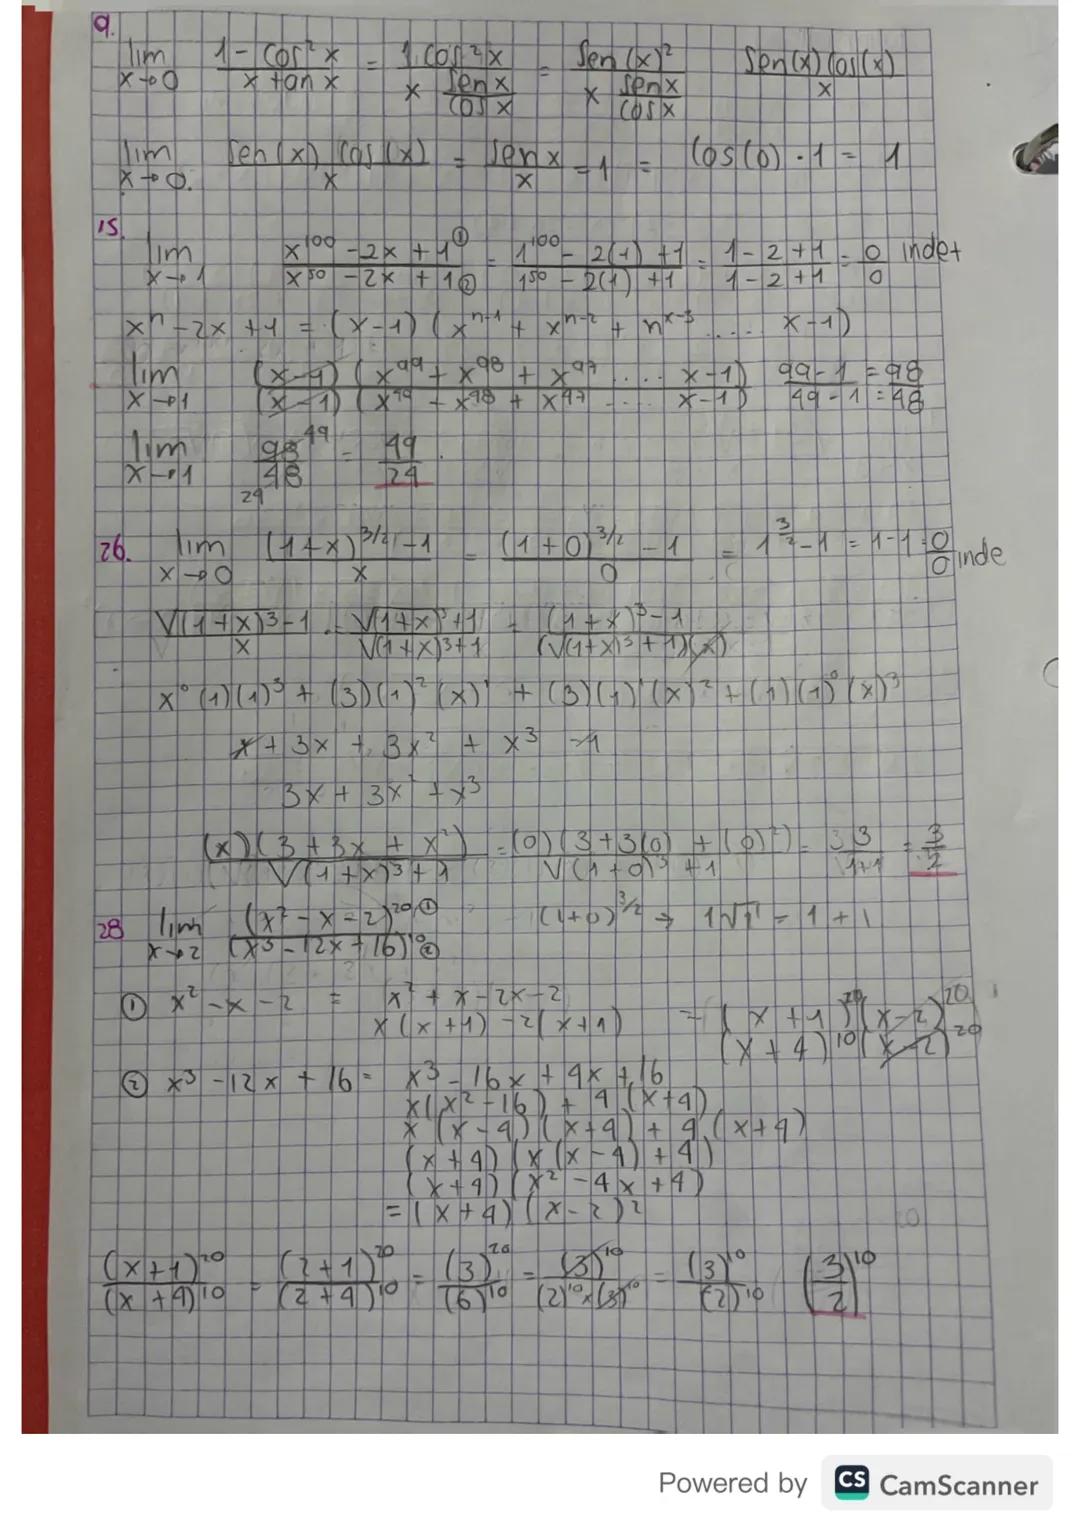 9.
lim x→0 (1 - cos²x)/(x tan x) = (1 cos²x)/(x (sen x)/(cos x)) = (sen(x)²)/(x (sen x)/(cos x)) (sen(x) cos(x))/x
lim x→0. (sen(x) cos(x))/x = (sen x)/x = 1 = cos(0) · 1 = 1
15.
lim x→1 (x¹⁰⁰ - 2x + 1 ①)/(x⁵⁰ - 2x + 1 ②) = (1¹⁰⁰ - 2(1) + 1)/(1⁵⁰ - 2(1) + 1) = (1 - 2 + 1)/(1 - 2 + 1) = 0/0 indet
xⁿ - 2x + 1 = (x-1) (xⁿ⁻¹ + xⁿ⁻² + nˣ⁻³ .... x-1)
lim x→1 ((x-1) (x⁹⁹ + x⁹⁸ + x⁹⁷ .... x-1))/((x-1) (x⁴⁹ - x⁴⁸ + x⁴⁷ .... x-1)) (99-1 = 98)/(49-1 = 48)
lim x→1 98/48 49 24 = 49/24
26. lim x→0 ((1+x)^(3/2) - 1)/x = ((1+0)^(3/2) - 1)/0 = 1^(3/2) - 1 = 1-1 = 0/0 inde
(√(1+x)³ - 1)/x · (√(1+x)³ + 1)/(√(1+x)³ + 1) = ((1+x)³ - 1)/((√(1+x)³ + 1)(x))
x⁰(1)(1)³ + (3)(1)²(x)¹ + (3)(1)¹(x)² + (1)(1)⁰(x)³
1 + 3x + 3x² + x³ - 1
3x + 3x² + x³
((x)(3 + 3x + x²))/(√(1+x)³ + 1) = ((0)(3 + 3(0) + (0)²))/(√(1+0)³ + 1) = 3 3/(1+1) = 3/2
28 lim x→2 ((x² - x - 2)²⁰ ①)/((x³ - 12x + 16)¹⁰ ②) (1+0)^(3/2) → 1√1¹ = 1 + 1
① x² - x - 2 = x² + x - 2x - 2
x(x+1) - 2(x+1) = ((x+1)²⁰(x-2)²⁰)/((x+4)¹⁰(x-2)²⁰)
② x³ - 12x + 16 = x³ - 16x + 4x + 16
x(x² - 16) + 4(x+4)
x(x-4)(x+4) + 4(x+4)
(x+4)(x(x-4) + 4)
(x+4)(x² - 4x + 4)
= (x+4)(x-2)²
(x+1)²⁰/(x+4)¹⁰ = (2+1)²⁰/(2+4)¹⁰ = (3)²⁰/(6)¹⁰ = (3)¹⁰/((2)¹⁰ × (3)¹⁰) = (3)¹⁰/(2)¹⁰ (3/2)¹⁰
Powered by CS CamScanner